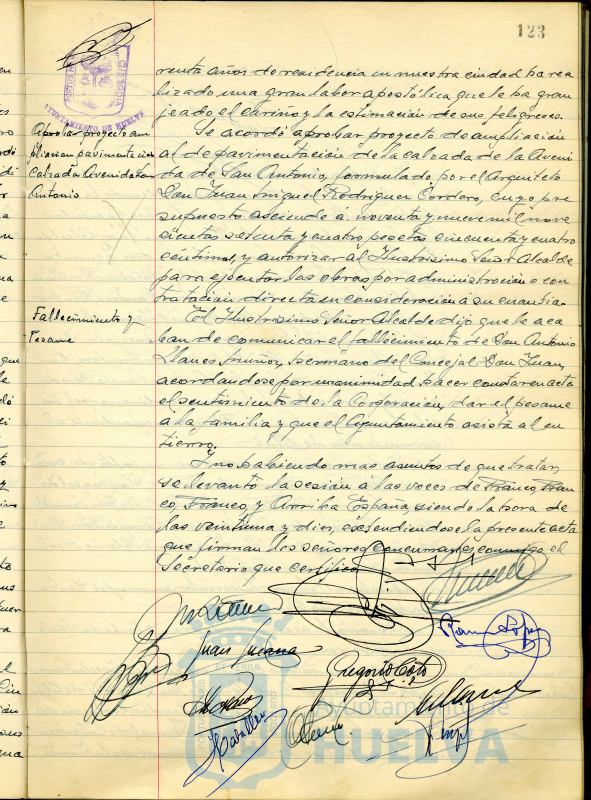 123
AYUNTAMIENTO DE HUELVA
renta años de residencia en nuestra ciudad ha rea
lizado una gran labor apostólica que le ha gran
jeado el cariño y la estimación de sus feligreses.
Aprobar proyecto am
pliación pavimentación
calzada Avenida San
Antonio
Se acordó aprobar proyecto de ampliación
al de pavimentación de la calzada de la Aveni
da de San Antonio, formulado por el Arquitecto
Don Juan Miguel Rodríguez Cordero, cuyo pre
supuesto asciende á noventa y nueve mil nove
cientas setenta y cuatro pesetas cincuenta y cuatro
céntimos, y autorizar al Ilustrísimo Señor Alcalde
para ejecutar las obras por administración o con
tratación directa en consideración a su cuantía.
Fallecimiento y
Pesame
El Ilustrísimo Señor Alcalde dijo que le aca
ban de comunicar el fallecimiento de Don Antonio
Llanes Muñoz, hermano del Concejal Don Juan,
acordándose por unanimidad hacer constar en acta
el sentimiento de la Corporación, dar el pesame
a la familia y que el Ayuntamiento asista al en
tierro.
Y no habiendo mas asuntos de que tratar,
se levantó la sesión á las voces de Franco, Fran
co, Franco, y Arriba España, siendo la hora de
las veintiuna y diez, extendiéndose la presente acta
que firman los señores concurrentes conmigo el
Secretario que certifico.
Juan
Gregorio Coto
Ramón López
Ayuntamiento de
HUELVA